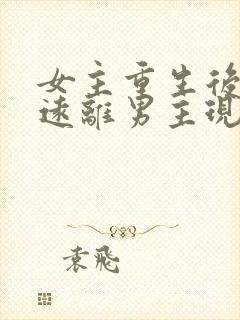 女主重生後
遠離男主現
袁飛